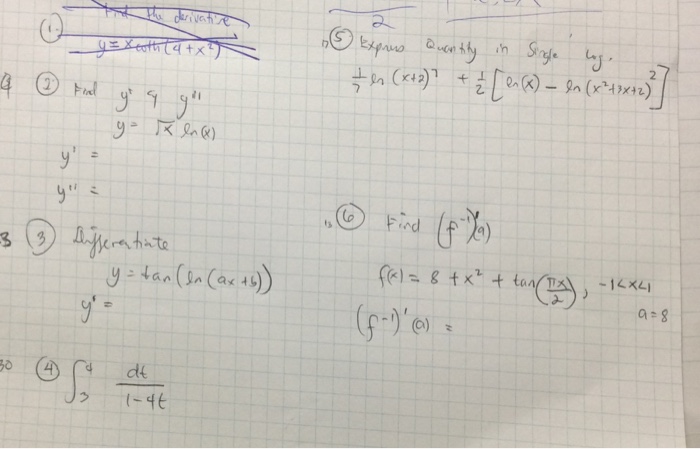 ① Find the derivative
y = x coth(4 + x²)
② Find y' & y''
y = √x ln(x)
y' =
y'' =
③ Differentiate
y = tan(ln(ax + b))
y' =
④ ∫₃⁴ dt / (1-4t)
2
⑤ Express Quantity in Single log.
1/7 ln (x+2)⁷ + 1/2 [ln(x) - ln (x²+3x+2)²]
⑥ Find (f⁻¹)'(a)
f(x) = 8 + x² + tan(πx/2), -1<x<1
a = 8
(f⁻¹)'(a) =
30